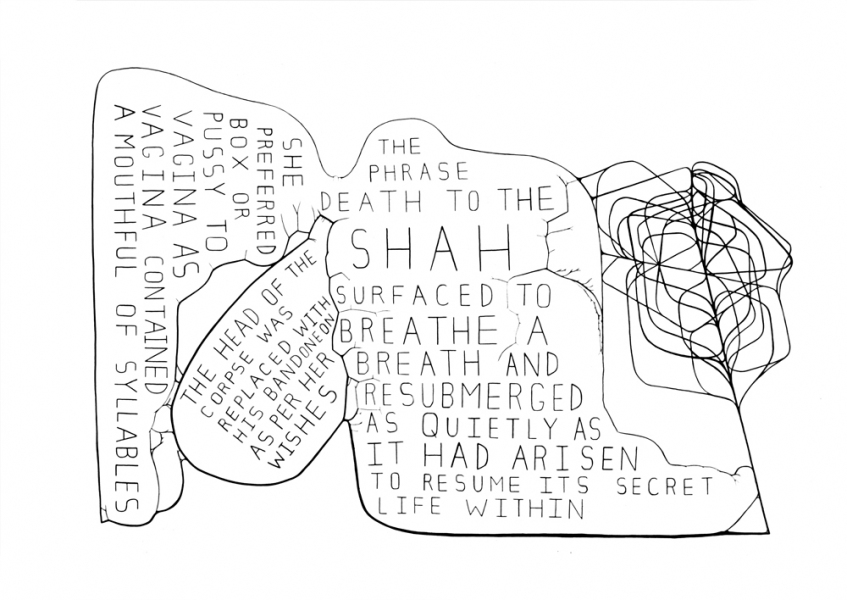 SHE
PREFERRED
BOX OR
PUSSY TO
VAGINA AS
VAGINA CONTAINED
A MOUTHFUL OF SYLLABLES
THE HEAD OF THE
CORPSE WAS
REPLACED WITH
HIS BANDONEON
AS PER HER
WISHES
THE
PHRASE
DEATH TO THE
SHAH
SURFACED TO
BREATHE A
BREATH AND
RESUBMERGED
AS QUIETLY AS
IT HAD ARISEN
TO RESUME ITS SECRET
LIFE WITHIN